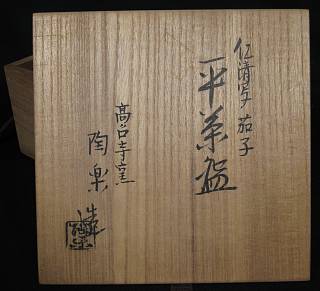 仁清写 茄子
平茶碗
高台寺窯
陶楽 造